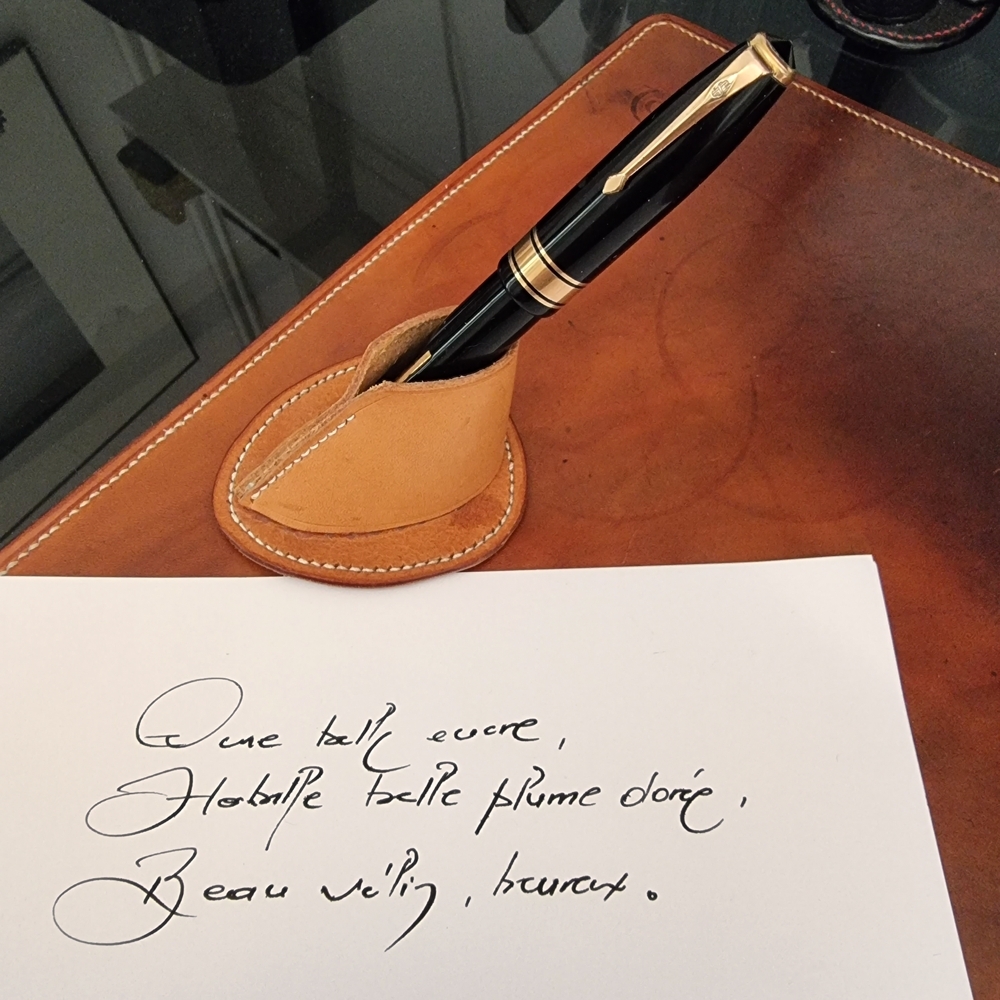 D'une belle encre,
Habille belle plume dorée,
Beau vélin, heureux.